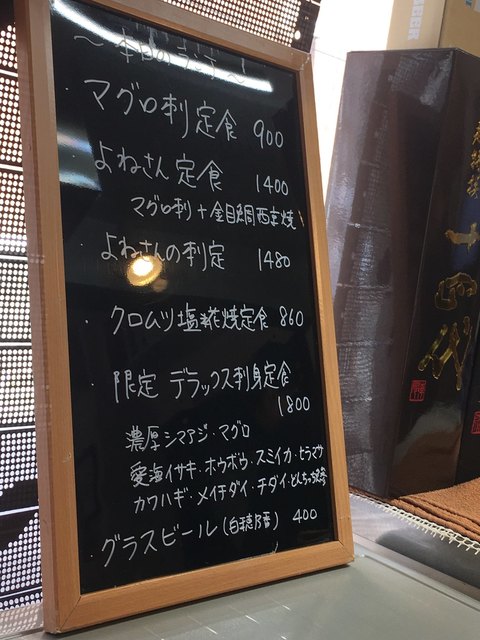 ～本日のランチ～
マグロ刺定食 900
よねさん定食 1400
マグロ刺+金目鯛西京焼
よねさんの刺定 1480
クロムツ塩糀焼定食 860
限定 デラックス刺身定食
1800
濃厚シマアジ・マグロ
愛海イサキ・ホウボウ・スミイカ・ヒラマサ
カワハギ・メイチダイ・チダイ・とんちっち
グラスビール(白穂乃香) 400
十四代